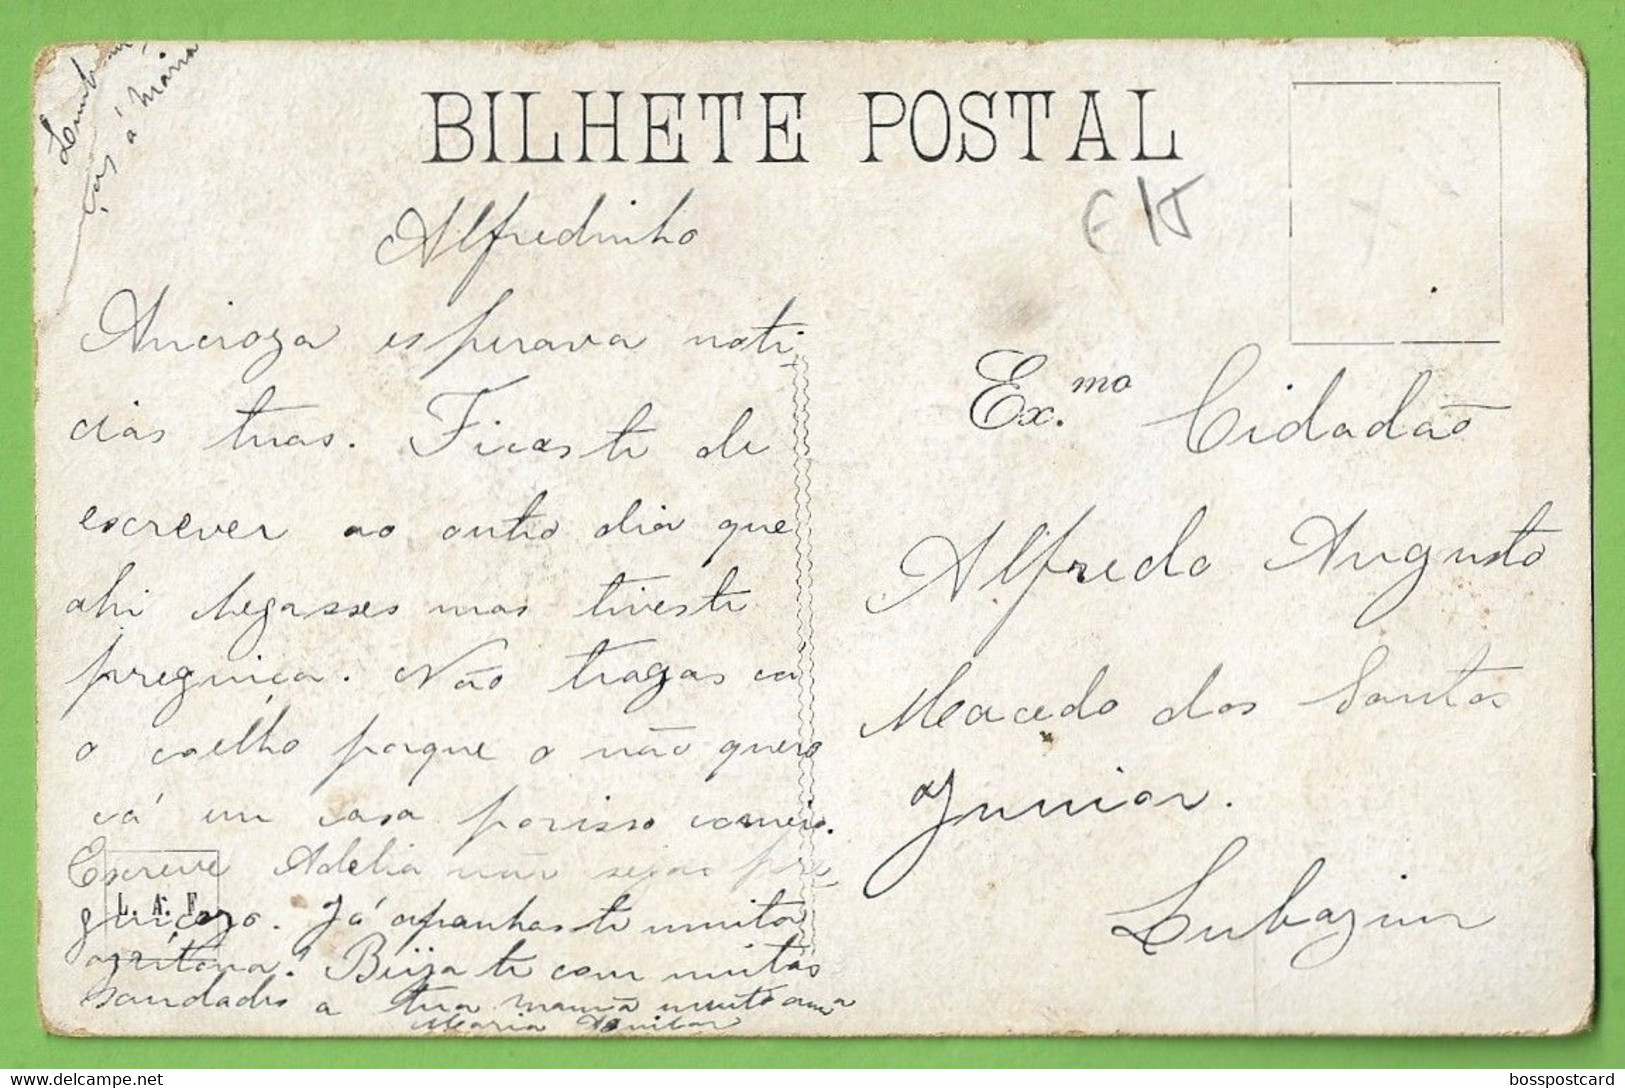 Lembran
ças á Maria
BILHETE POSTAL
Alfredinho
Ancioza esperava noti-
cias tuas. Ficaste de
escrever ao outro dia que
ahi chegasses mas tiveste
preguiça. Não tragas cá
o coelho porque o não quero
cá em casa porisso come-o.
Escreve Adelia não sejas pre-
guiçozo. Já apanhaste muita
azeitona? Beija te com muitas
saudades a tua mamã muito ama
Maria
L. A. F.
Ex.mo Cidadão
Alfredo Augusto
Macedo dos Santos
Junior.
bosspostcard